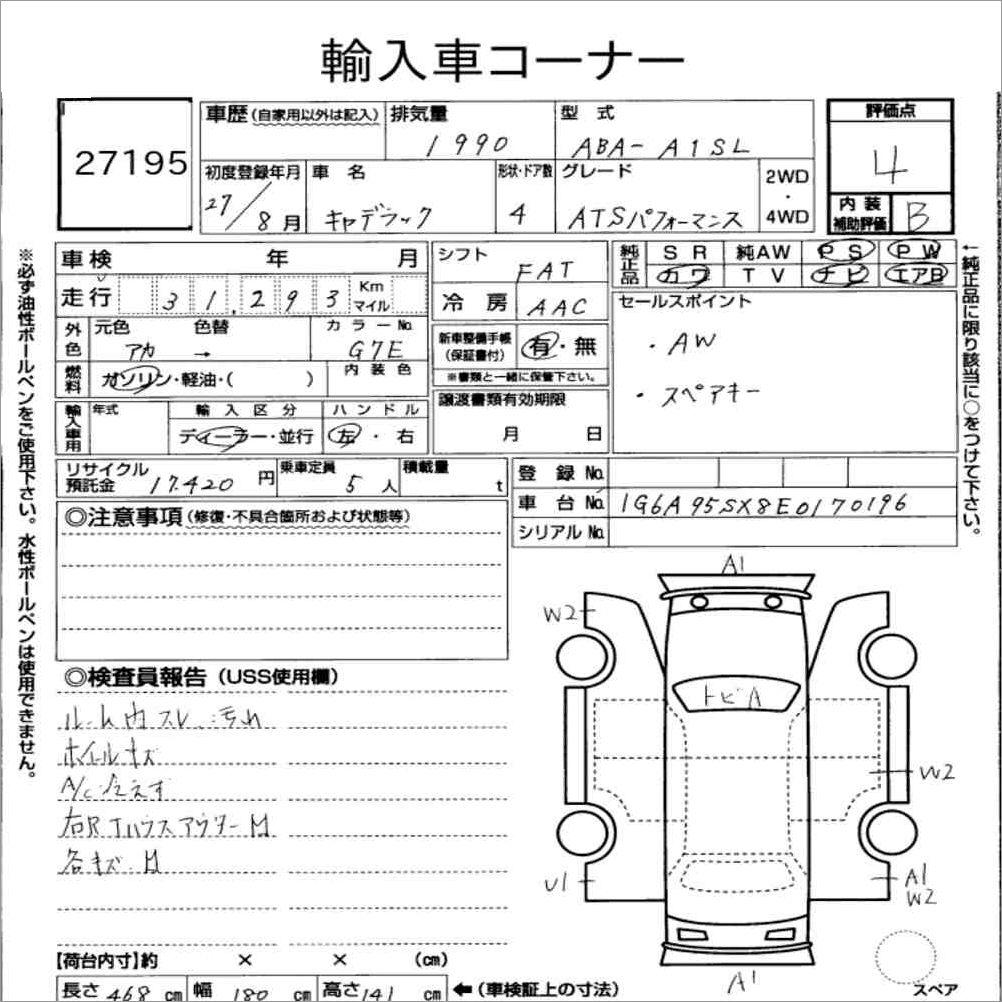 輸入車コーナー
27195
車歴 (自家用以外は記入) 排気量 1990 型式 ABA-A1SL 評価点 4
初度登録年月 27/8月 車名 キャデラック 形状・ドア数 4 グレード ATSパフォーマンス 2WD・4WD
内装補助評価 B
※必ず油性ボールペンをご使用下さい。水性ボールペンは使用できません。
車検 年 月
走行 31,293 Km マイル
外色 元色 アカ 色替 → カラーNo. G7E
燃料 ガソリン・軽油・( ) 内装色
輸入車用 年式 輸入区分 ディーラー・並行 ハンドル 左・右
リサイクル預託金 17.420円 乗車定員 5人 積載量 t
シフト FAT
冷房 AAC
新車整備手帳 (保証書付) 有・無
※書類と一緒に保管下さい。
譲渡書類有効期限
月 日
純正品 SR 純AW PS PW
カワ TV ナビ エアB
セールスポイント
・AW
・スペアキー
←純正品に限り該当に○をつけて下さい。
登録No.
車台No. 1G6A95SX8E0170196
シリアルNo.
◎注意事項 (修復・不具合箇所および状態等)
◎検査員報告 (USS使用欄)
ルーム内スレ汚れ
ホイールキズ
A/C冷えず
右RTハウスアウターM
各キズ.M
A1
W2
トビA
W2
U1
A1
W2
A1
スペア
【荷台内寸】約 × × (cm)
長さ 468 cm 幅 180 cm 高さ 141 cm ←(車検証上の寸法)